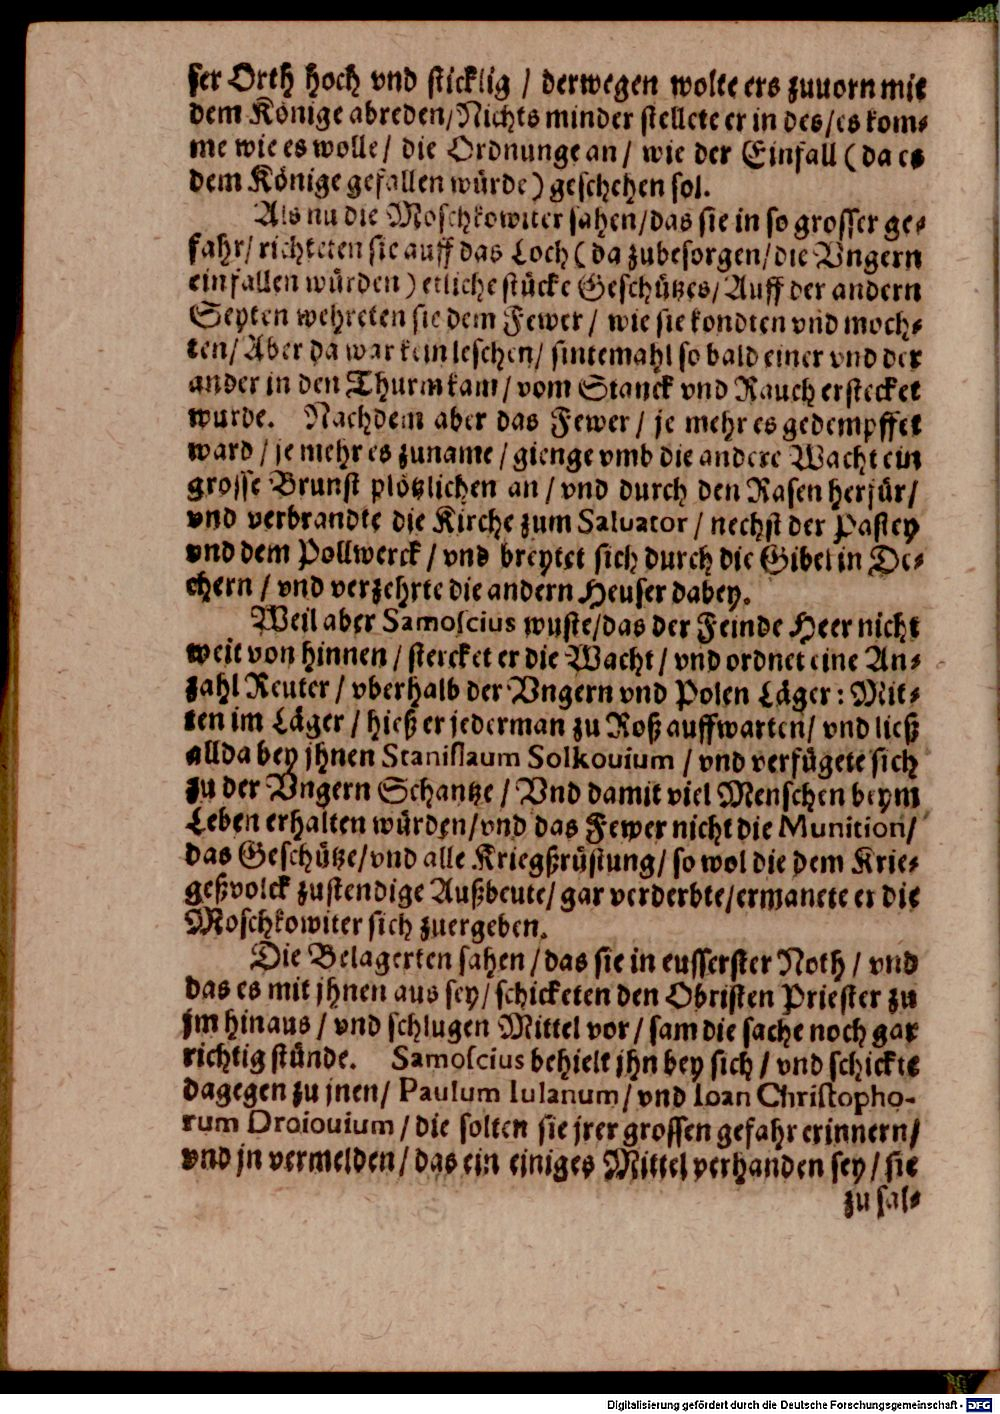 ser Orth hoch vnd sticklig / derwegen wolte ers zuuorn mit
dem Könige abreden/Nichts minder stellete er in des/es kom⸗
me wie es wolle/ die Ordnunge an/ wie der Einfall (da es
dem Könige gefallen würde) geschehen sol.
Als nu die Moschkowiter sahen/das sie in so grosser ge⸗
fahr/ richteten sie auff das Loch (da zubesorgen/die Vngern
einfallen würden) etliche stücke Geschützes/ Auff der andern
Seyten wehreten sie dem Fewer / wie sie kondten vnd moch⸗
ten/ Aber da war kein leschen/ sintemahl so bald einer vnd der
ander in den Thurm kam/ vom Stanck vnd Rauch erstecket
wurde. Nachdem aber das Fewer / je mehr es gedempffet
ward / je mehr es zuname / gienge vmb die andere Wacht ein
grosse Brunst plötzlichen an / vnd durch den Rasen herfür/
vnd verbrandte die Kirche zum Saluator / nechst der Pastey
vnd dem Pollwerck / vnd breytet sich durch die Gibel in De⸗
chern / vnd verzehrte die andern Heuser dabey.
Weil aber Samoscius wuste/das der Feinde Heer nicht
weit von hinnen / stercket er die Wacht / vnd ordnet eine An⸗
zahl Reuter / vberhalb der Vngern vnd Polen Läger: Mit⸗
ten im Läger / hieß er jederman zu Roß auffwarten/ vnd ließ
allda bey jhnen Stanislaum Solkouium / vnd verfügete sich
zu der Vngern Schantze / Vnd damit viel Menschen beym
Leben erhalten würden/vnd das Fewer nicht die Munition/
das Geschütze/vnd alle Kriegßrüstung/ so wol die dem Krie⸗
geßvolck zustendige Außbeute/ gar verderbte/ermanete er die
Moschkowiter sich zuergeben.
Die Belagerten sahen / das sie in eusserster Noth / vnd
das es mit jhnen aus sey/ schicketen den Obristen Priester zu
jm hinaus / vnd schlugen Mittel vor / sam die sache noch gar
richtig stünde. Samoscius behielt jhn bey sich / vnd schickte
dagegen zu jnen/ Paulum Iulanum/ vnd Ioan Christopho-
rum Droiouium / die solten sie jrer grossen gefahr erinnern/
vnd jn vermelden / das ein einiges Mittel verhanden sey / sie
zu sal⸗
Digitalisierung gefördert durch die Deutsche Forschungsgemeinschaft - DFG